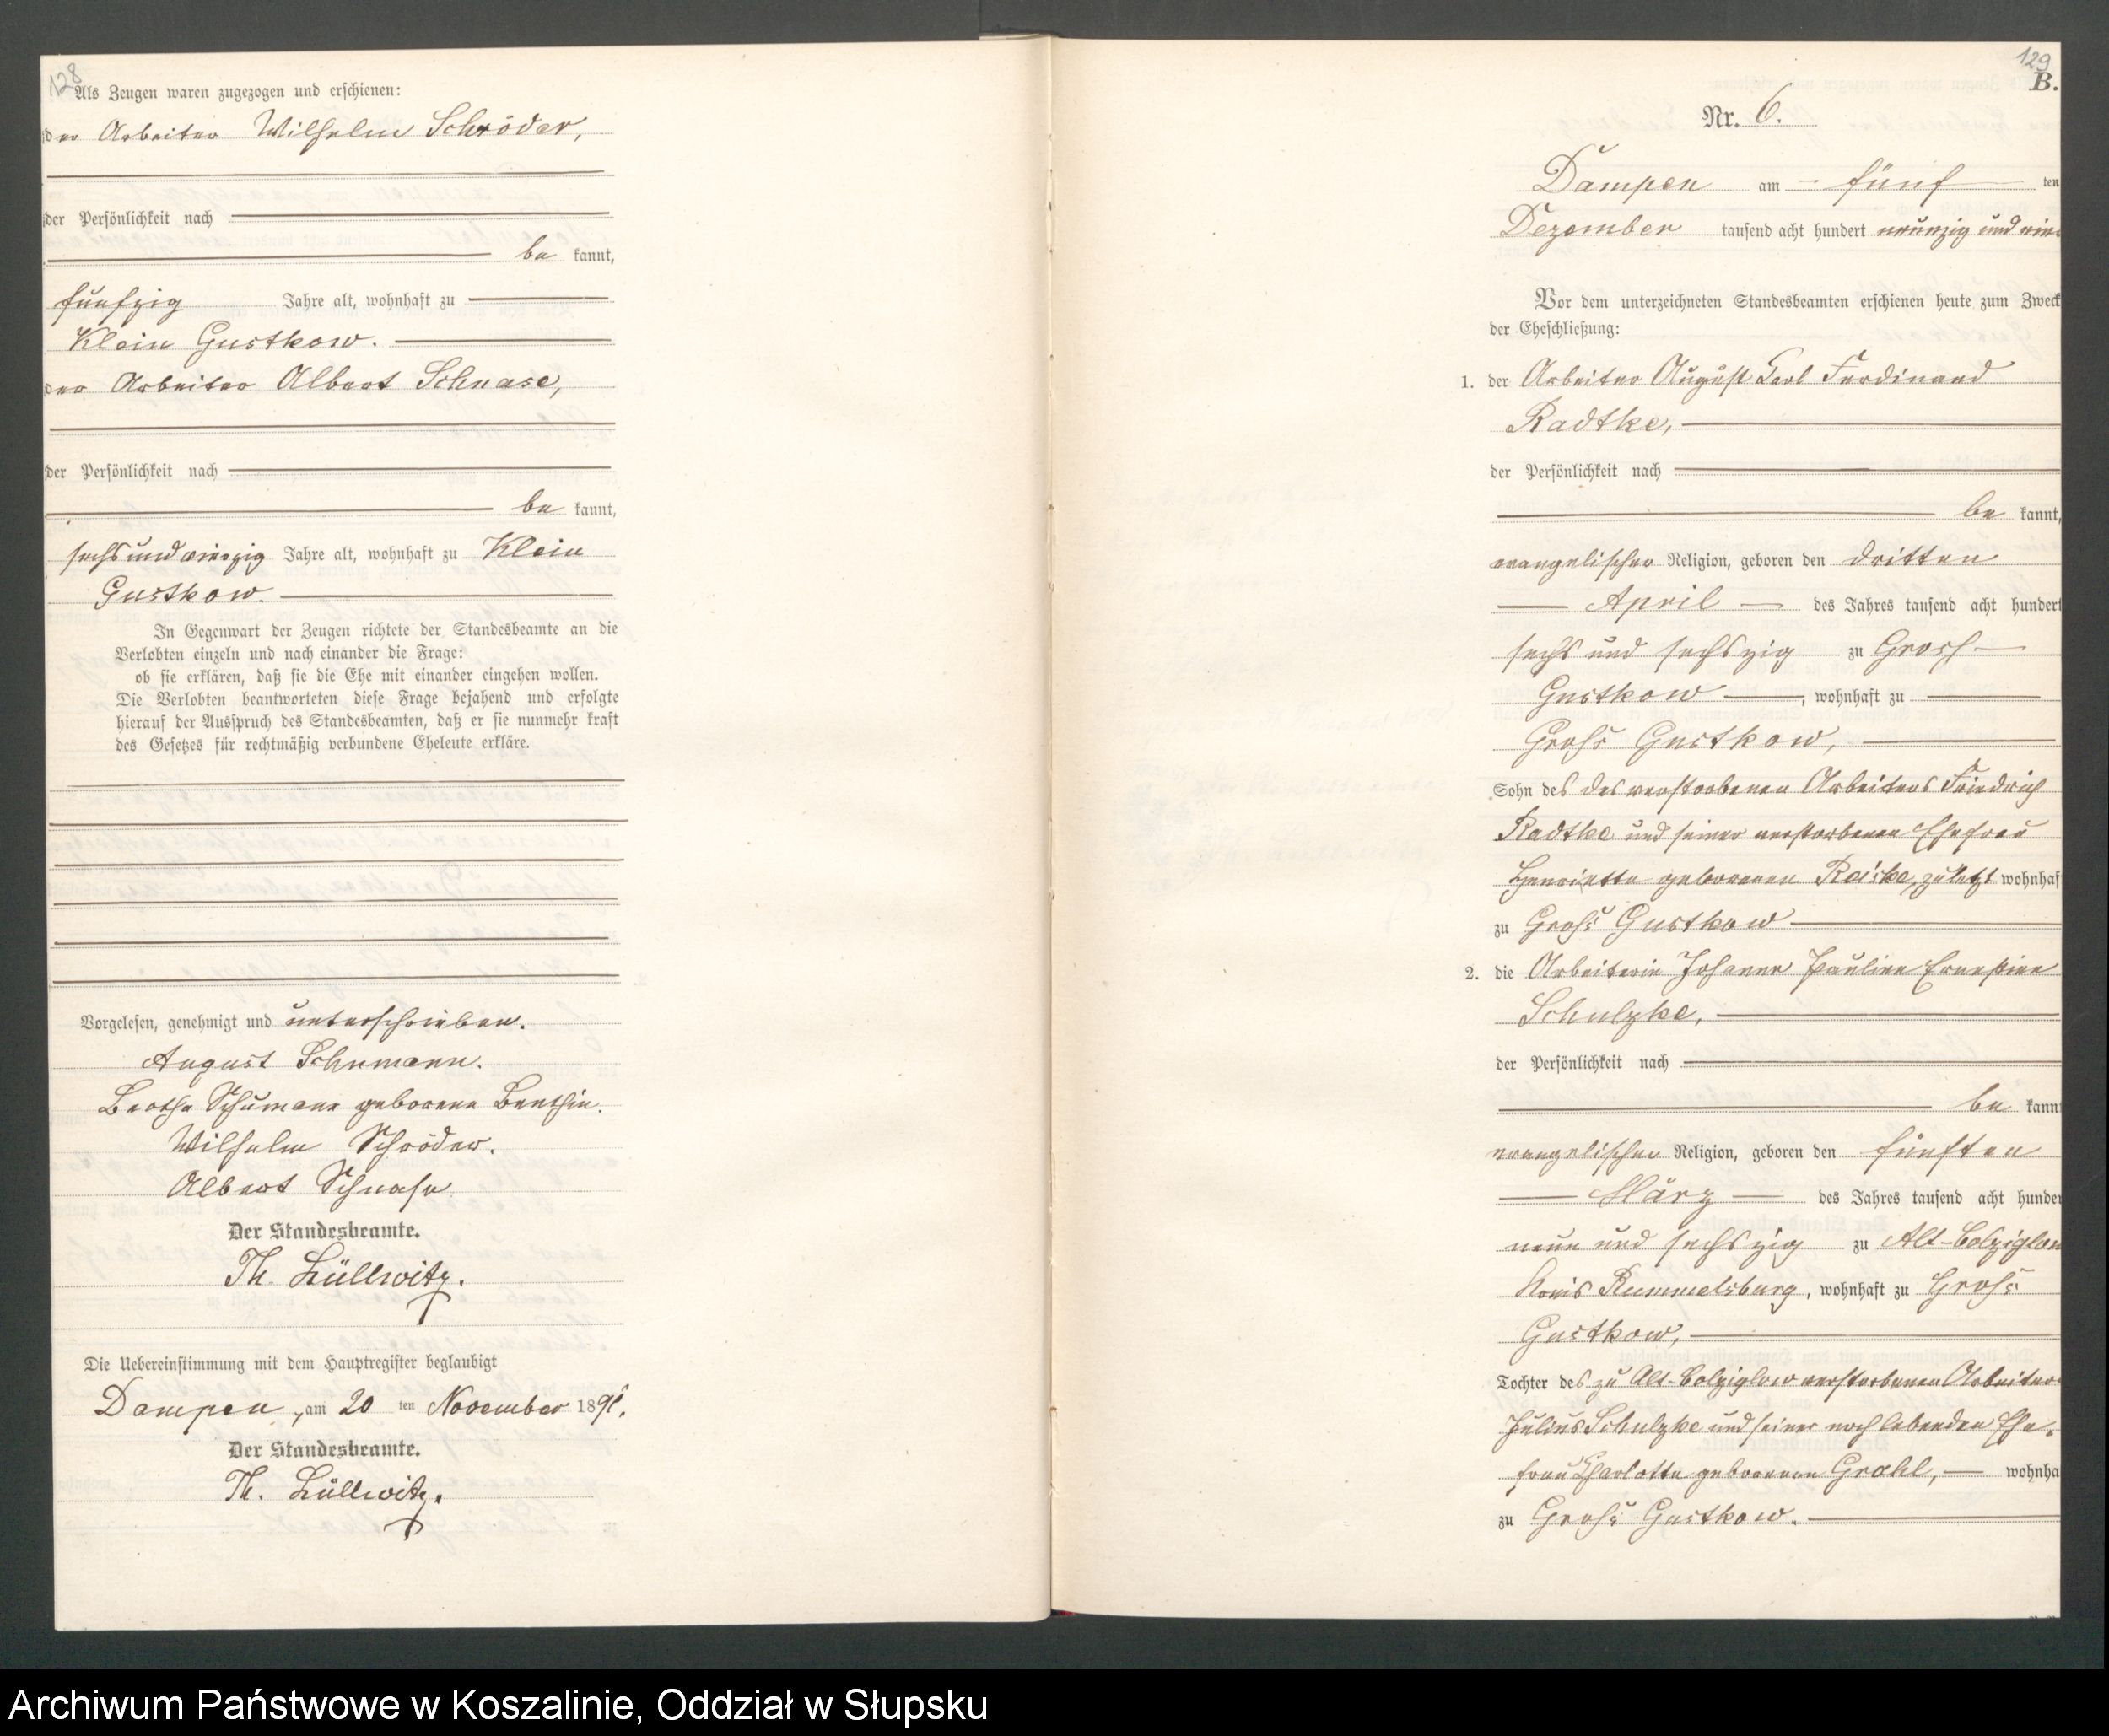 128
Als Zeugen waren zugezogen und erschienen:
der Arbeiter Wilhelm Schröder,
der Persönlichkeit nach
be kannt,
fünfzig Jahre alt, wohnhaft zu
Klein Gustkow.
der Arbeiter Albert Schnase,
der Persönlichkeit nach
be kannt,
sechsundvierzig Jahre alt, wohnhaft zu Klein
Gustkow.
In Gegenwart der Zeugen richtete der Standesbeamte an die
Verlobten einzeln und nach einander die Frage:
ob sie erklären, daß sie die Ehe mit einander eingehen wollen.
Die Verlobten beantworteten diese Frage bejahend und erfolgte
hierauf der Ausspruch des Standesbeamten, daß er sie nunmehr kraft
des Gesetzes für rechtmäßig verbundene Eheleute erkläre.
Vorgelesen, genehmigt und unterschrieben.
August Schumann.
Bertha Schumann geborene Benthin.
Wilhelm Schröder.
Albert Schnase
Der Standesbeamte.
Th. Lüllwitz.
Die Uebereinstimmung mit dem Hauptregister beglaubigt
Dampen, am 20 ten November 1891.
Der Standesbeamte.
Th. Lüllwitz.
129
B.
Nr. 6.
Dampen am fünf ten
Dezember tausend acht hundert neunzig und ein
Vor dem unterzeichneten Standesbeamten erschienen heute zum Zweck
der Eheschließung:
1. der Arbeiter August Carl Ferdinand
Radtke,
der Persönlichkeit nach
be kannt,
evangelischer Religion, geboren den dritten
April des Jahres tausend acht hundert
sechs und sechszig zu Gross
Gustkow, wohnhaft zu
Gross Gustkow,
Sohn des des verstorbenen Arbeiters Friedrich
Radtke und seiner verstorbenen Ehefrau
Henriette geborenen Raiske, zuletzt wohnhaf
zu Gross Gustkow
2. die Arbeiterin Johanne Pauline Ernestine
Schulzke,
der Persönlichkeit nach
be kannt
evangelischer Religion, geboren den fünften
März des Jahres tausend acht hunder
neun und sechszig zu Alt-Colziglow
Kreis Rummelsburg, wohnhaft zu Gross
Gustkow,
Tochter des zu Alt-Colziglow verstorbenen Arbeiters
Julius Schulzke und seiner noch lebenden Ehe-
frau Charlotte geborenen Grahl, wohnha
zu Gross Gustkow.
Archiwum Państwowe w Koszalinie, Oddział w Słupsku